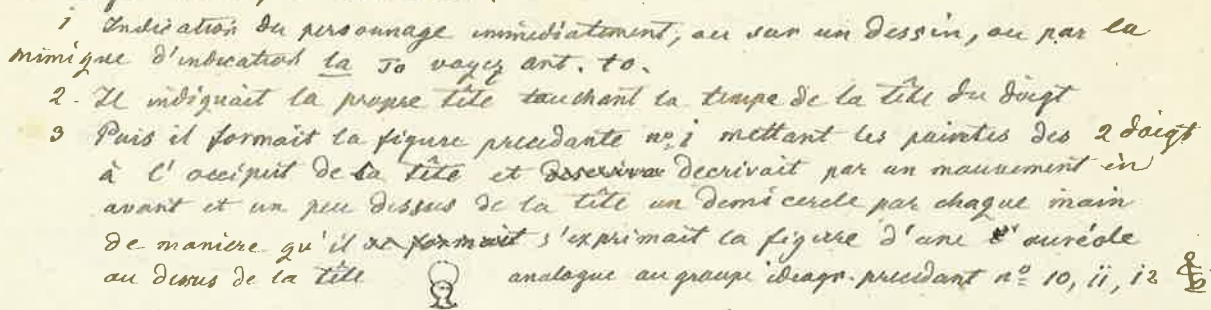 1 Indication du personnage immediatement, ou sur un dessin, ou par la
mimique d'indication la To voyez art. to.
2. Il indiquait la propre tête touchant la tempe de la tête du doigt
3 Puis il formait la figure precedante nº 1 mettant les pointes des 2 doigt
à l'occiput de la tête et decrivait par un mouvement en
avant et un peu dessus de la tête un demi cercle par chaque main
de maniere qu'il s'exprimait la figure d'une auréole
au dessus de la tête analogue au groupe ideogr. precedant nº 10, 11, 12